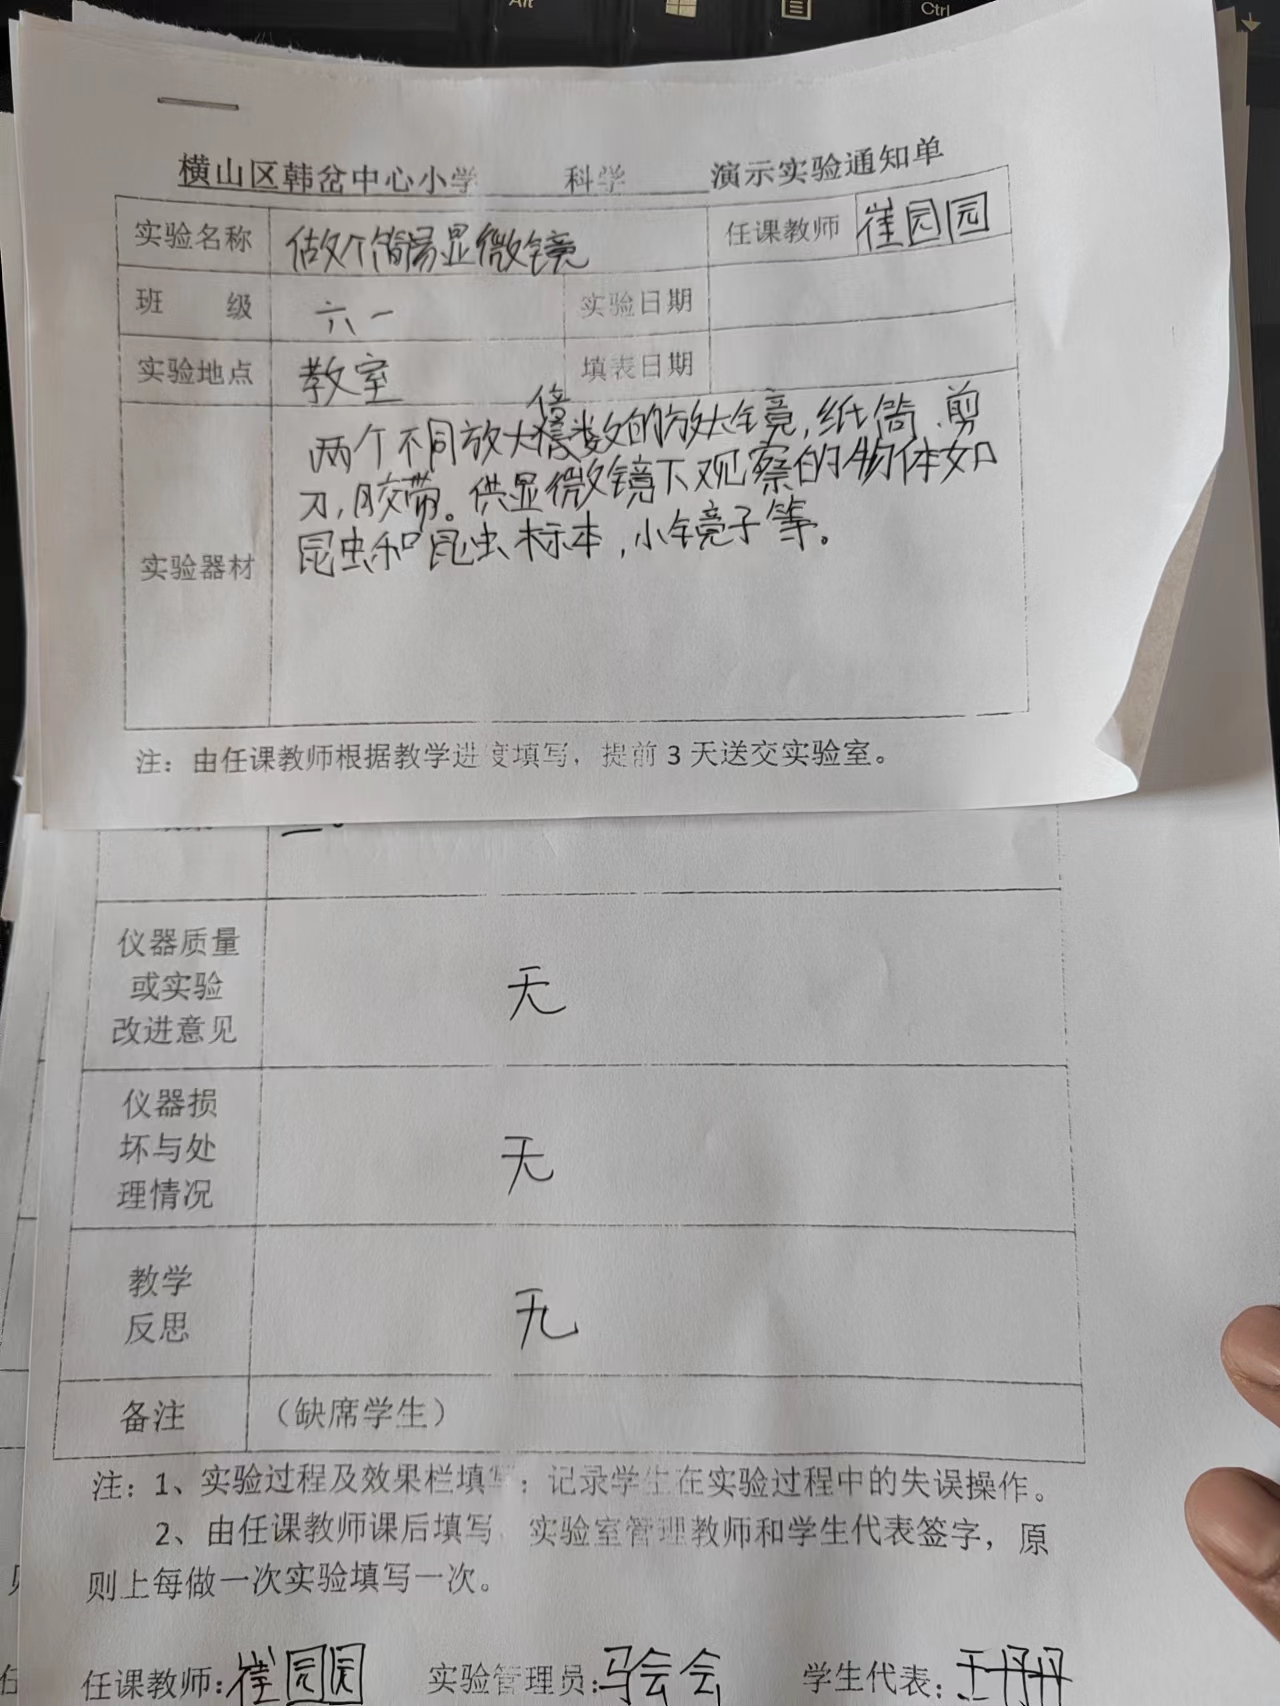 Alt
Ctrl
横山区韩岔中心小学 科学 演示实验通知单
实验名称 做个简易显微镜 任课教师 崔园园
班 级 六一 实验日期
实验地点 教室 填表日期
倍
两个不同放大数的放大镜,纸筒、剪
刀,胶带。供显微镜下观察的物体如
昆虫和昆虫标本,小镜子等。
实验器材
注:由任课教师根据教学进度填写,提前3天送交实验室。
仪器质量
或实验
改进意见
无
仪器损
坏与处
理情况
无
教学
反思
无
备注 (缺席学生)
注:1、实验过程及效果栏填写:记录学生在实验过程中的失误操作。
2、由任课教师课后填写 实验室管理教师和学生代表签字,原
则上每做一次实验填写一次。
任课教师:崔园园 实验管理员:马会会 学生代表:王丹丹